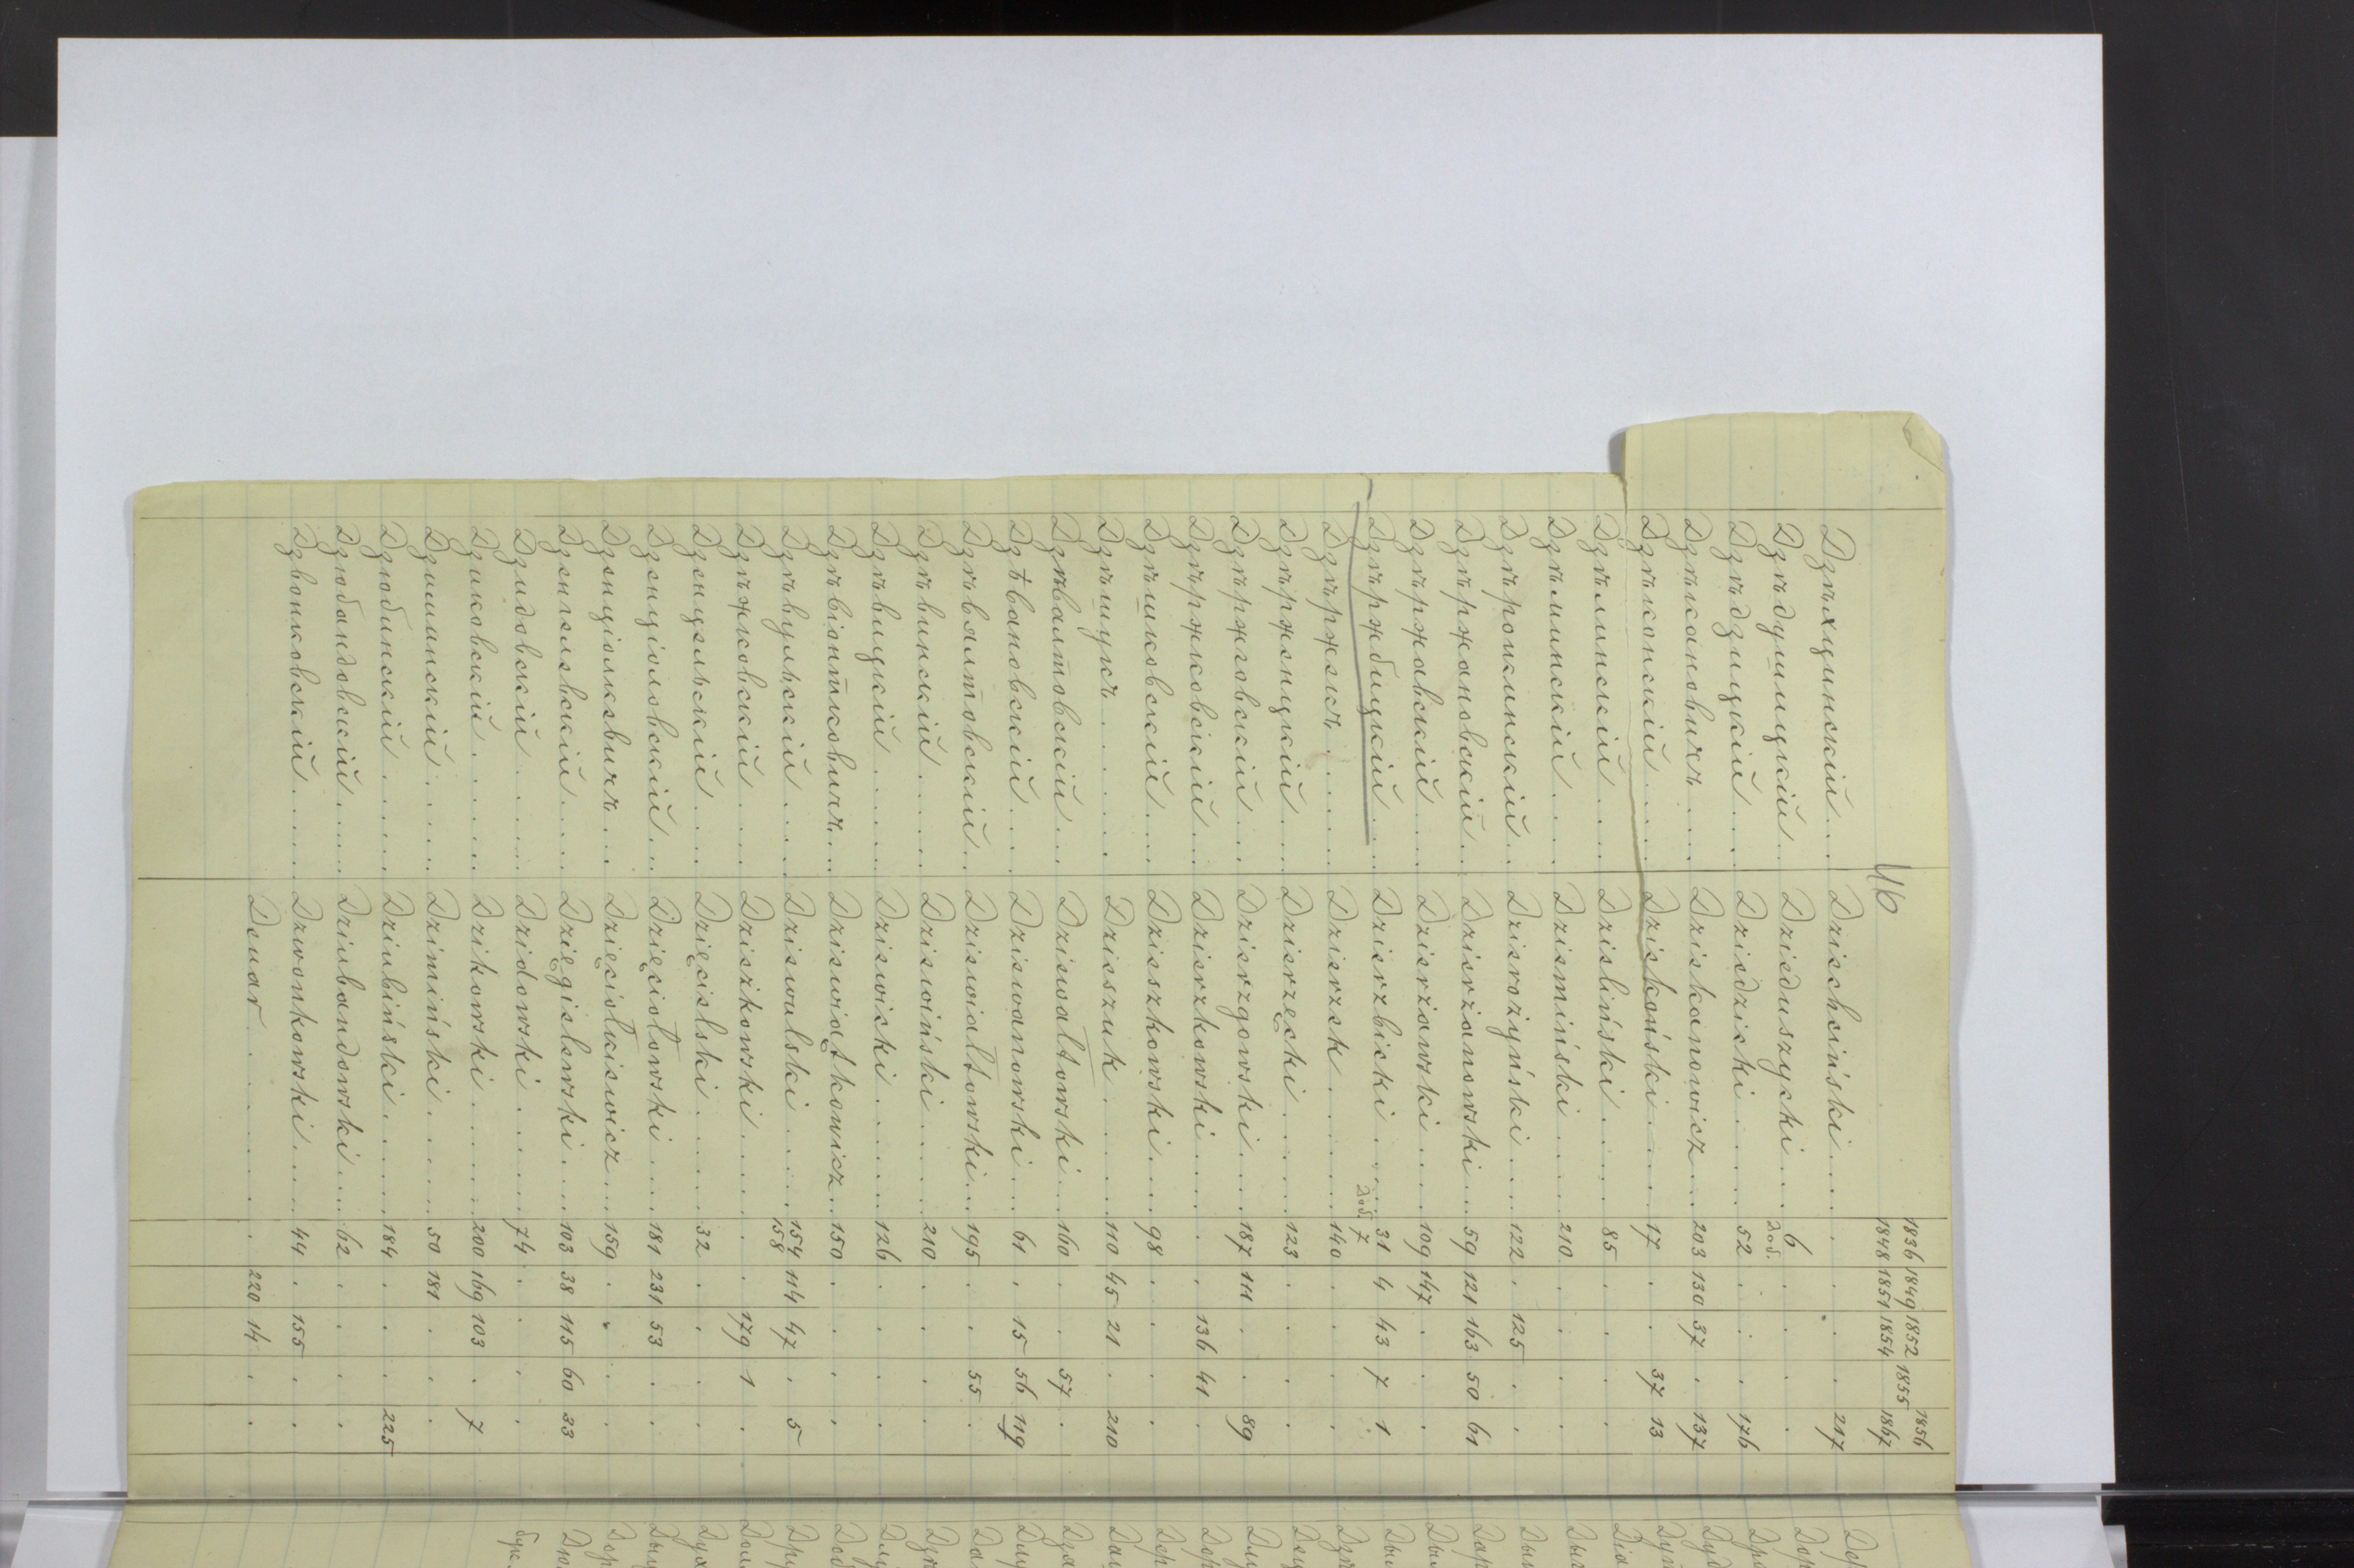 46
1836 1849 1852 1856
1848 1851 1854 1855 1867
Дзѣхцинскій... Dziechciński.... . . . . 217
Дзѣдушицкій... Dzieduszycki... 6 . . . .
2 од.
Дзѣдзицкій... Dziedzicki.... 52 . . . 176
Дзѣкановичъ.... Dziekanowicz... 203 130 37 . 137
Дзѣконскій..... Dziekoński.... 17 . . 37 13
Дзѣлинскій.... Dzieliński..... 85 . . . .
Дзѣминскій.... Dziemiński.... 210 . . . .
Дзѣрожинскій.. Dzierożyński.... 122 . 125 . .
Дзѣржановскій.. Dzierżanowski... 59 121 163 50 61
Дзѣржавскій.... Dzierżawski.... 109 147 . . .
Дзѣржбицкій.... Dzierzbicki..... 31 4 43 7 1
Дод. 7
Дзѣржекъ...... Dzierzek...... 140 . . . .
Дзѣрженцкій.... Dzierzęcki..... 123 . . . .
Дзѣржговскій... Dzierzgowski.... 187 111 . . 89
Дзѣржковскій... Dzierzkowski... . . 136 41 .
Дзѣшковскій.... Dzieszkowski.... 98 . . . .
Дзѣшукъ...... Dzieszuk...... 110 45 21 . 210
Дзѣвалтовскій... Dziewałtowski... 160 . . 57 .
Дзѣвановскій.... Dziewanowski... 61 . 15 56 119
Дзѣвялтовскій.. Dziewiałtowski... 195 . . 55 .
Дзѣвинскій..... Dziewiński.... 210 . . . .
Дзѣвицкій..... Dziewicki..... 126 . . . .
Дзѣвіонтковичъ... Dziewiątkowicz... 150 . . . .
Дзѣвульскій..... Dziewulski..... 154 114 47 . 5
158
Дзѣжковскій.... Dzieżkowski..... . . 179 1 .
Дзенцельскій.... Dzięcielski..... 32 . . . .
Дзенціоловскій... Dzięciołowski.... 181 231 53 . .
Дзенціолкевичъ... Dzięciołkiewicz... 159 . . . .
Дзенгелевскій.... Dzięgielewski.... 103 38 115 60 33
Дзидовскій..... Dzidowski..... 74 . . . .
Дзиковскій..... Dzikowski..... 200 169 103 . 7
Дзиминскій..... Dzimiński..... 50 181 . . .
Дзюбинскій..... Dziubiński..... 184 . . . 225
Дзюбандовскій.... Dziubandowski.... 62 . . . .
Дзвонковскій..... Dzwonkowski.... 44 . 155 . .
. 220 14 . .